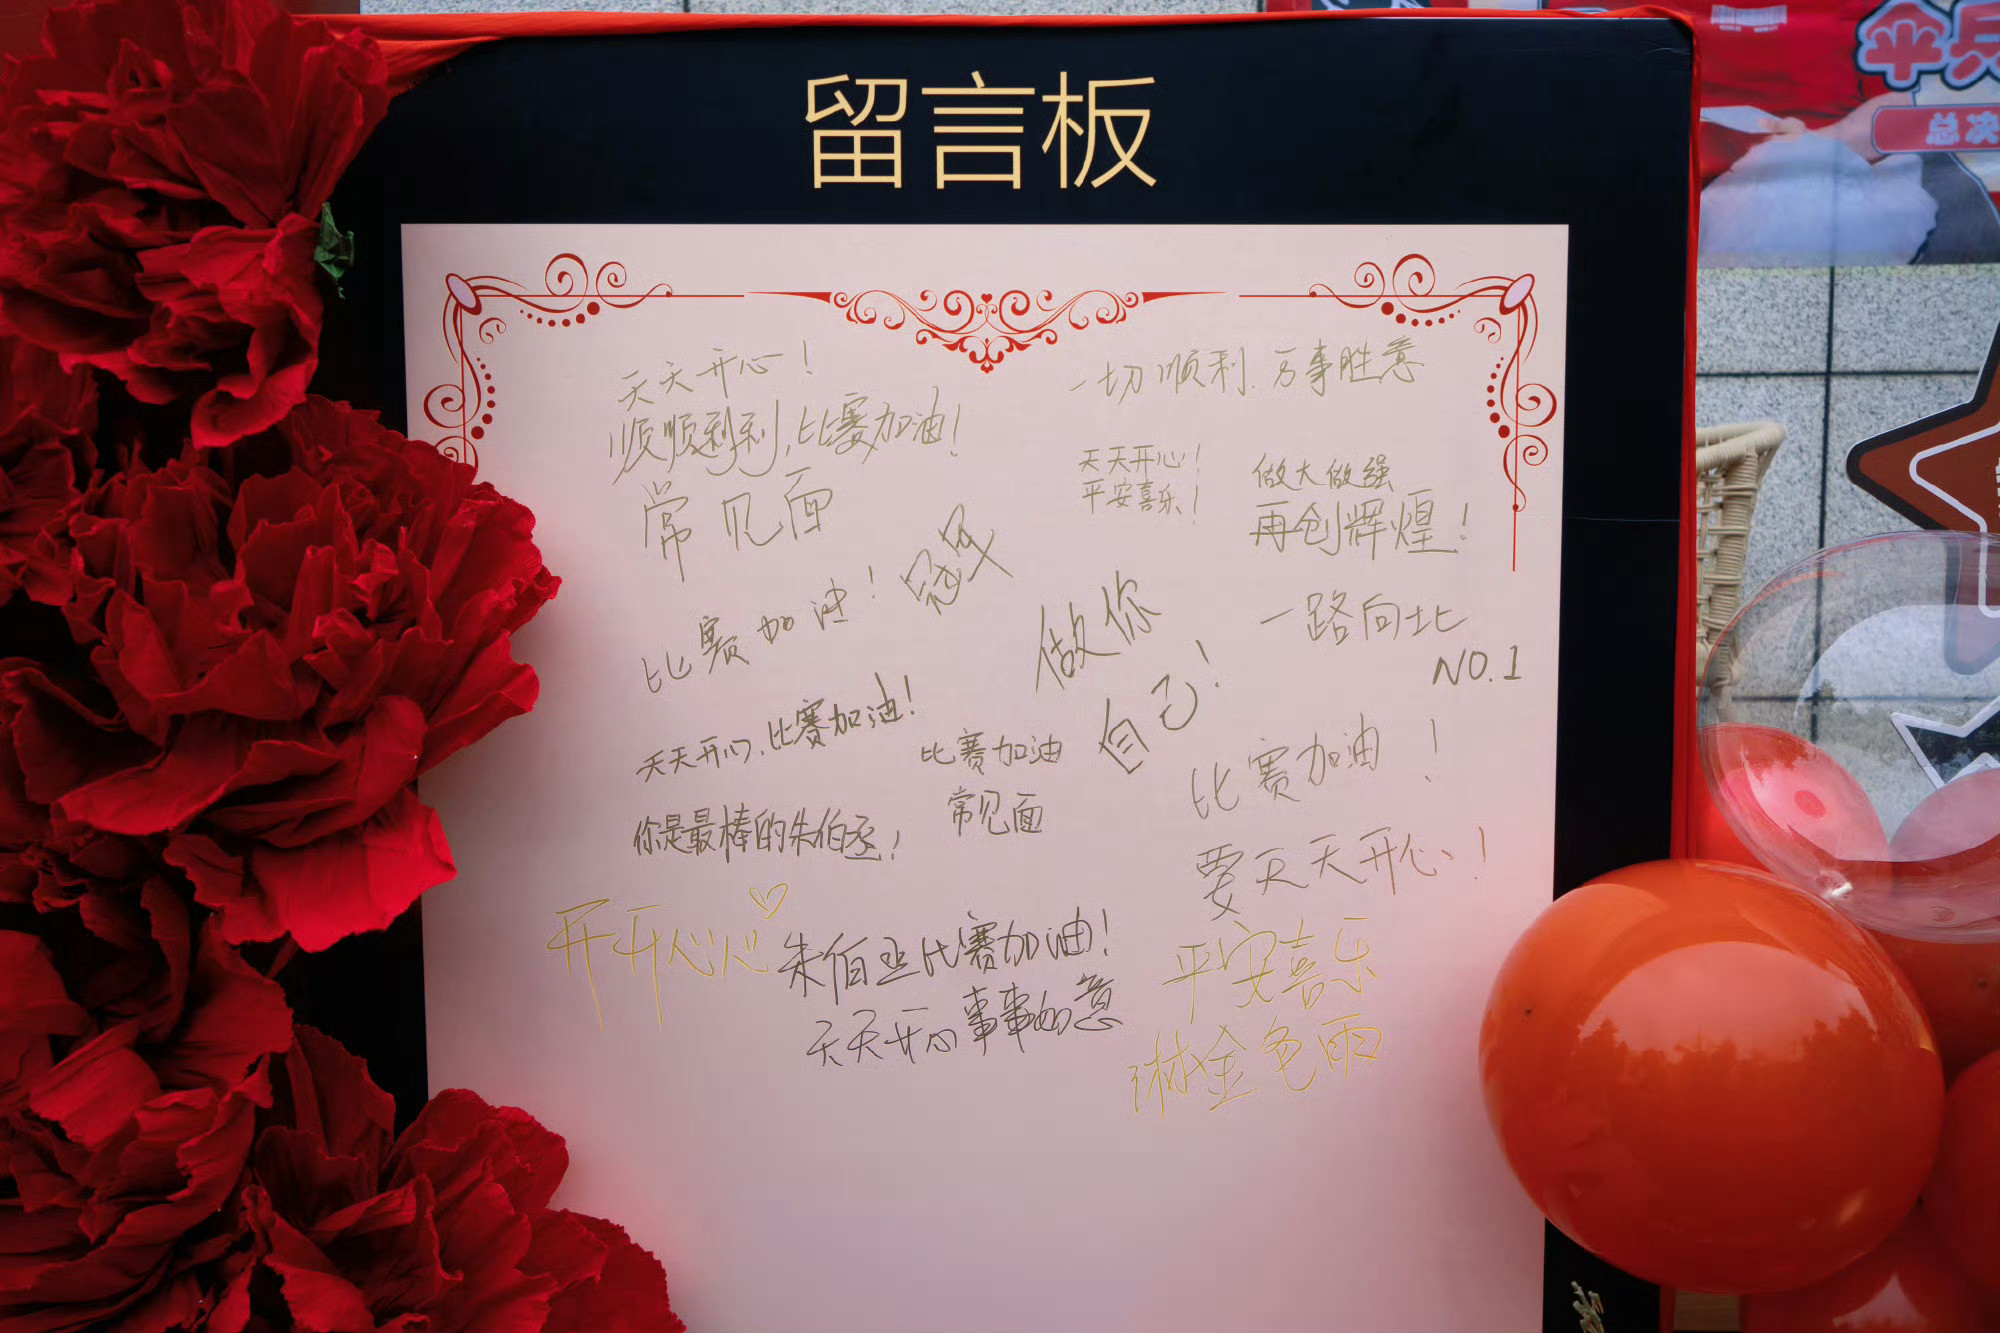 留言板
伞兵
总决
天天开心！
顺顺利利，比赛加油！
常见面
一切顺利，万事胜意
天天开心！
平安喜乐！
做大做强
再创辉煌！
比赛加油！
冠军
做你
自己！
一路向北
NO.1
天天开心，比赛加油！
比赛加油
常见面
比赛加油！
你是最棒的朱伯丞！
要天天开心！
开开心心
朱伯丞比赛加油！
天天开心事事如意
平安喜乐
淋金色雨